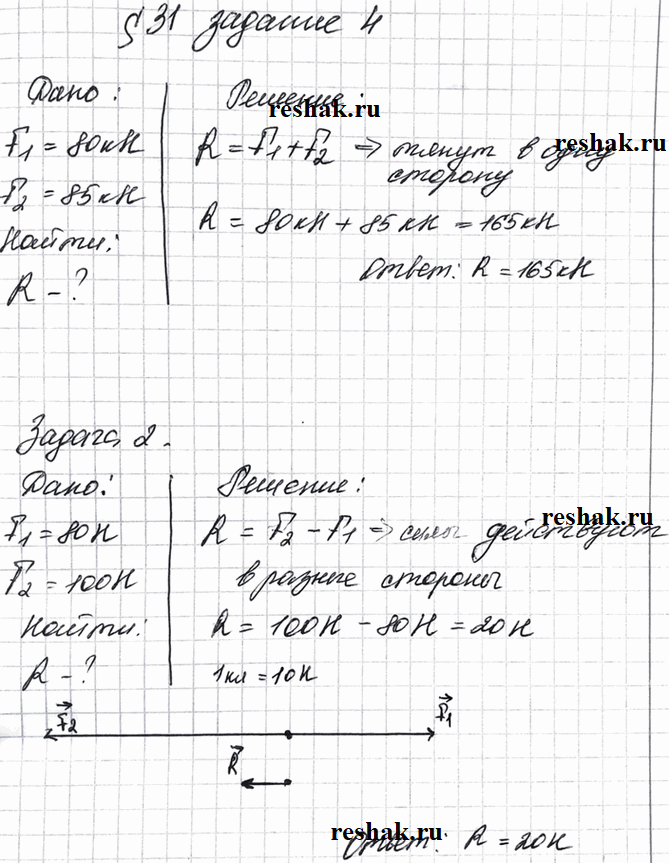 § 31 задание 4
Дано:
F₁ = 80кН
F₂ = 85кН
Найти:
R - ?
Решение:
reshak.ru
R = F₁ + F₂ => тянут в одну
reshak.ru
сторону
R = 80кН + 85кН = 165кН
Ответ: R = 165кН
Задача 2.
Дано:
F₁ = 80Н
F₂ = 100Н
Найти:
R - ?
Решение:
reshak.ru
R = F₂ - F₁ => силы действуют
в разные стороны
R = 100Н - 80Н = 20Н
1кл = 10Н
F₂
F₁
R
reshak.ru
Ответ: R = 20Н